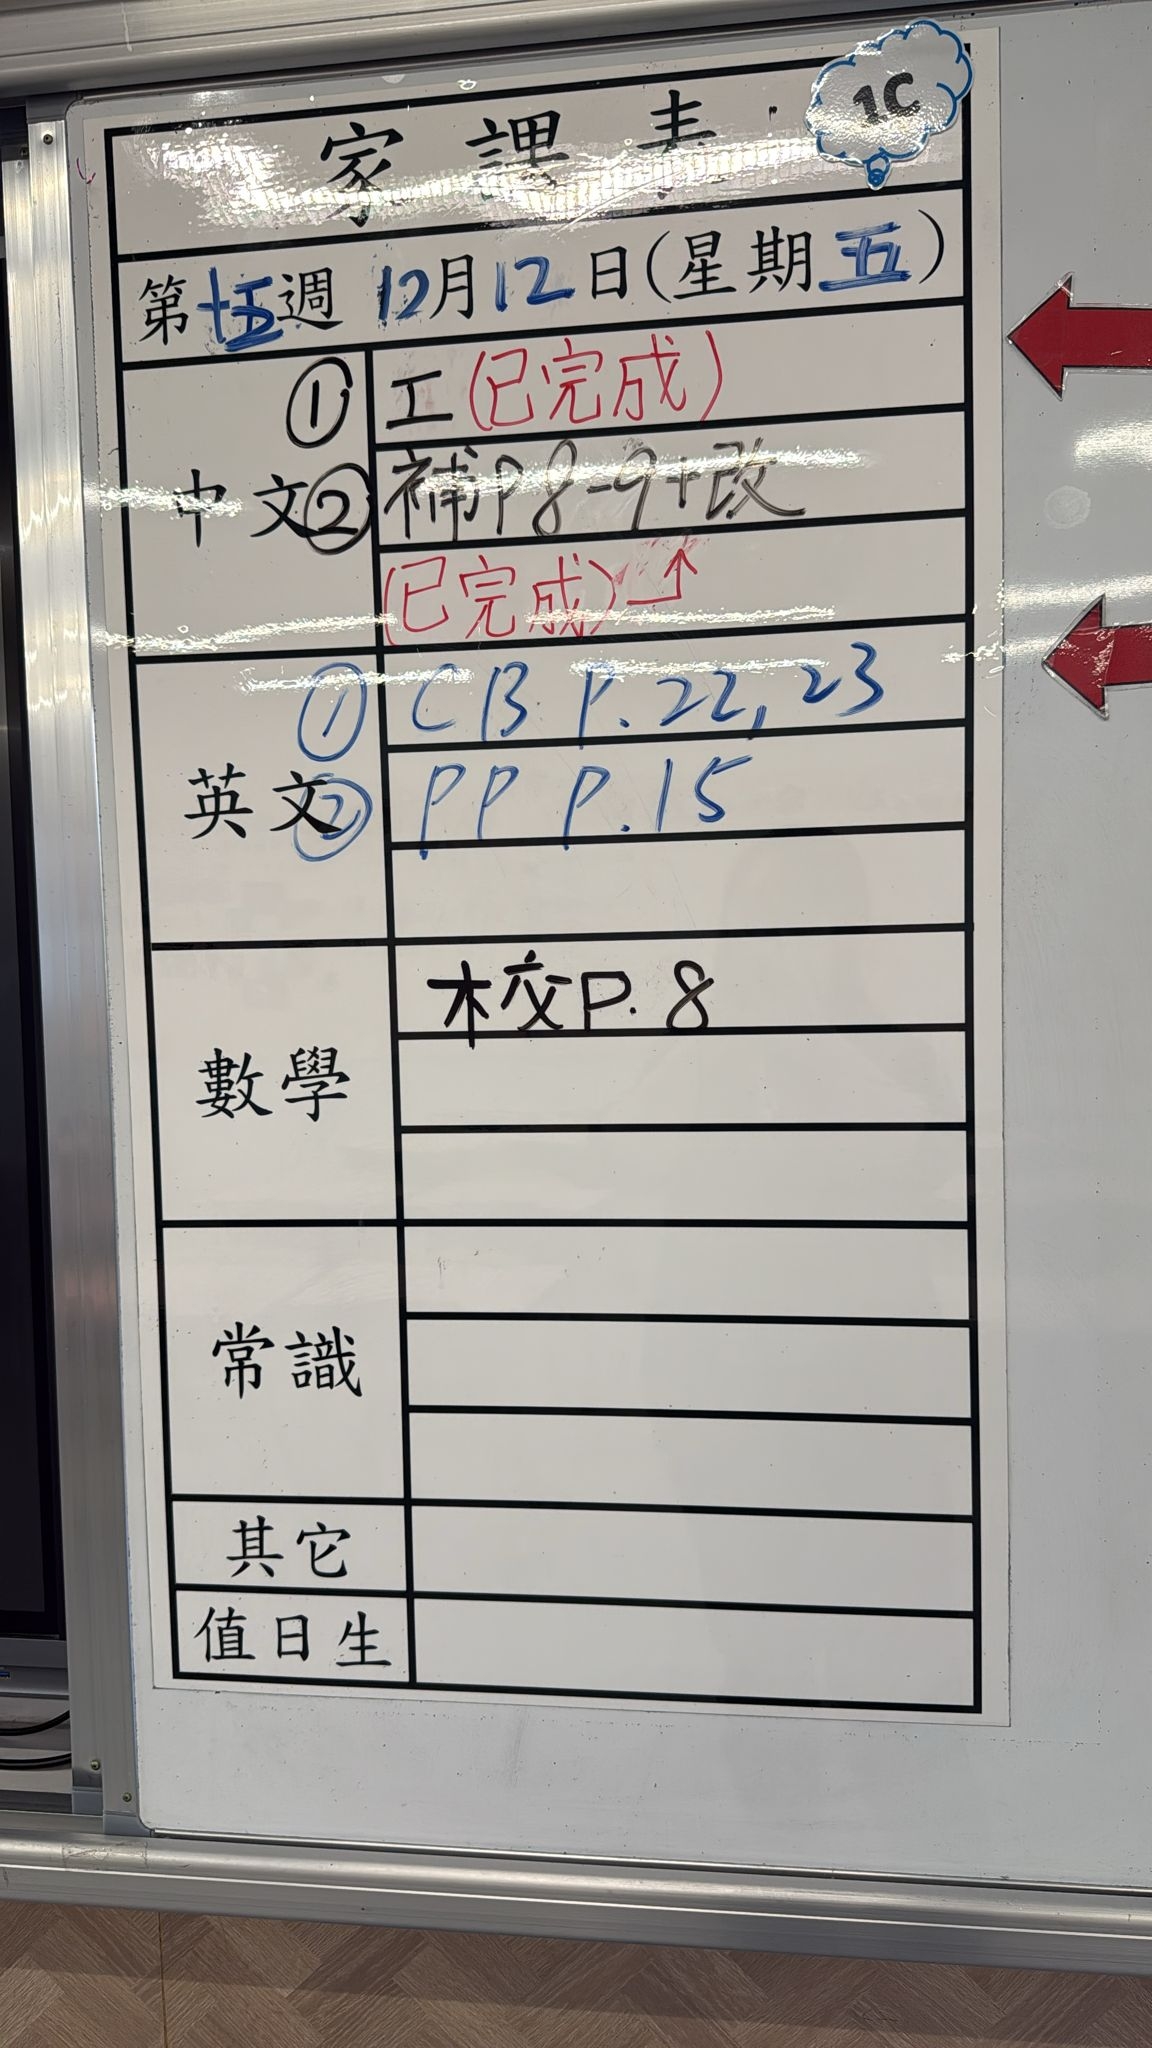 1C
家課表
第十五週 12月12日(星期五)
中文
① 工(已完成)
② 補P8-9+改
(已完成)
英文
① CB P.22,23
② PP P.15
數學
校P.8
常識
其它
值日生